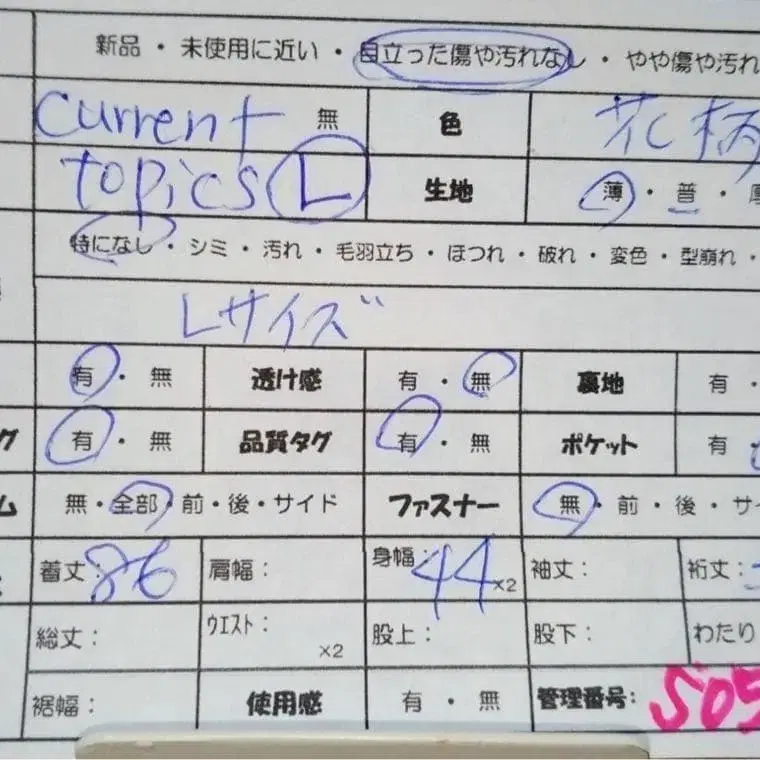 新品・未使用に近い・目立った傷や汚れなし・やや傷や汚れ
current 無 色 花柄
topics L 生地 薄・普・厚
特になし・シミ・汚れ・毛羽立ち・ほつれ・破れ・変色・型崩れ・
Lサイズ
有・無 透け感 有・無 裏地 有・
グ 有・無 品質タグ 有・無 ポケット 有・
ム 無・全部・前・後・サイド ファスナー 無・前・後・サイ
着丈: 86 肩幅: 身幅: 44 ×2 袖丈: 裄丈:
総丈: ウエスト: ×2 股上: 股下: わたり
裾幅: 使用感 有・無 管理番号: S05